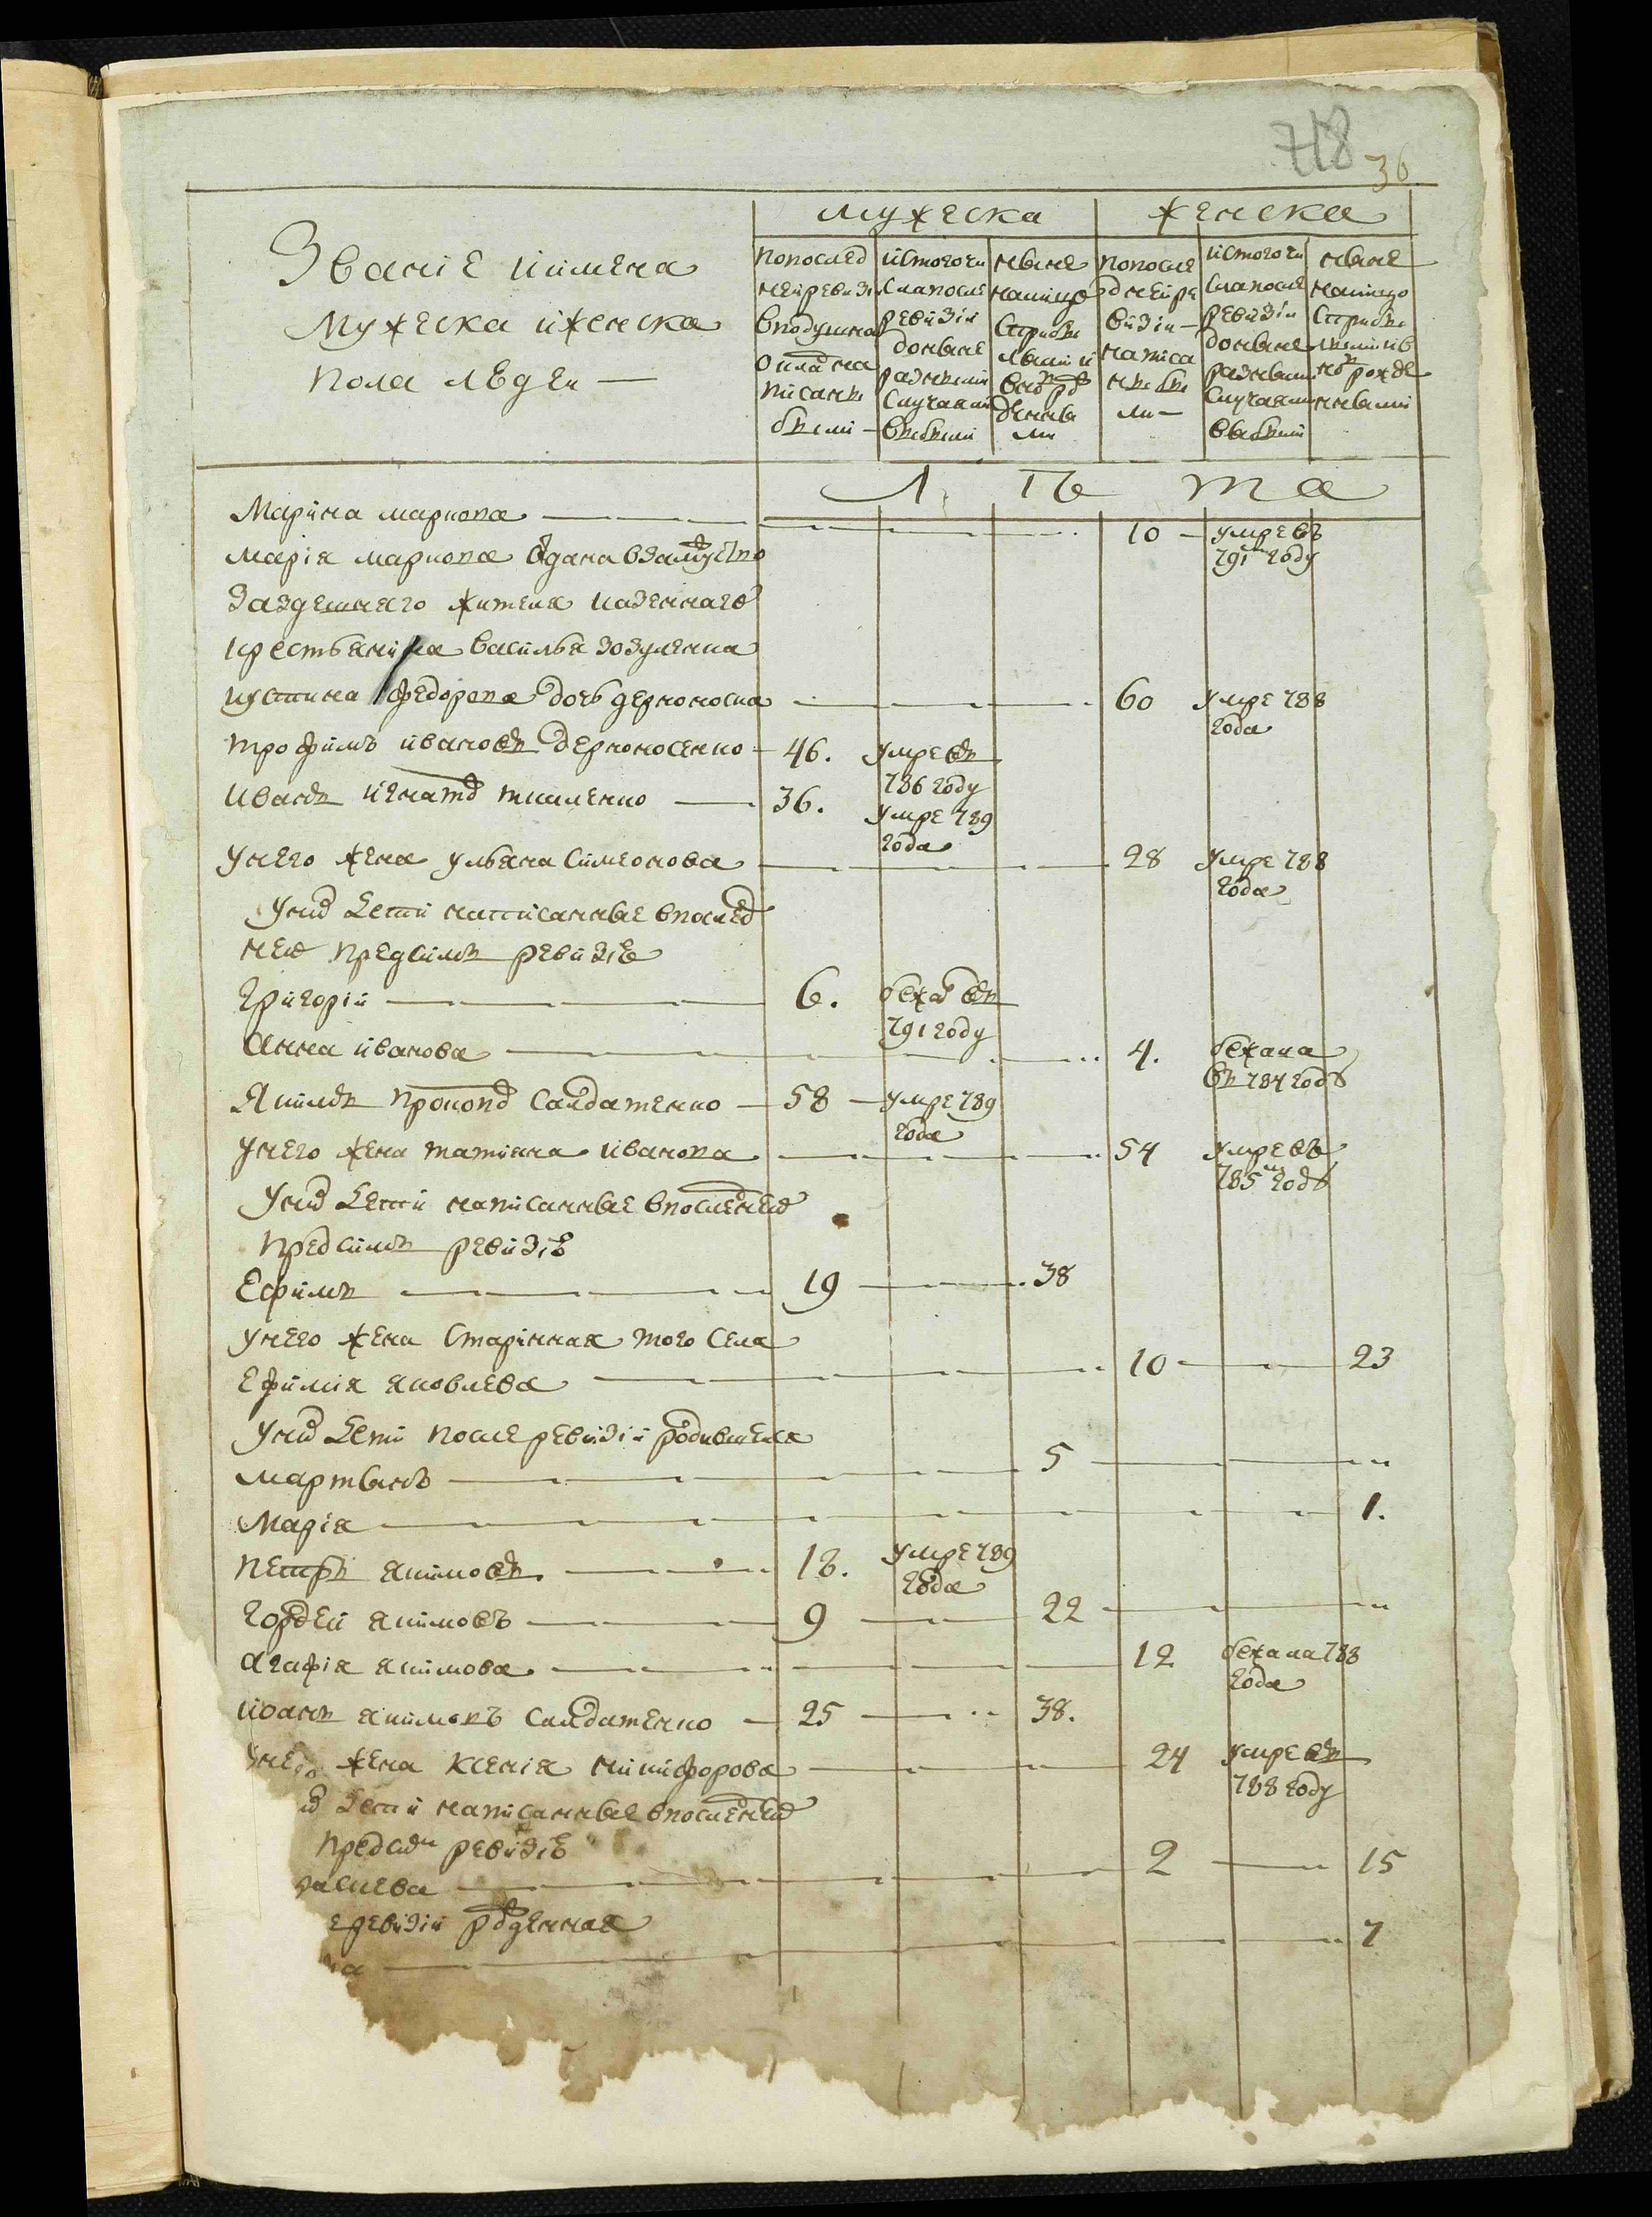 718
36
Званiе иимена
мужеска иженска
пола людеи —
мужеска
женска
попослед
неиревизи
вподушно
окладна
писани
были —
истогочи
слапосле
ревизiи
доныне
разными
случаями
выбыли
ныне
налицо
попосле
днеире
визiи —
написа
ны бы
ли —
истогочи
слапосле
ревизiи
доныне
разными
случаями
выбыли
ныне
налицо
Л Ѣ та
Марина маркова — 10 — умре въ
791м году
марiя маркова вдана взамуство
заздешняго жителя казеннаго
крестьянина василья зозуленка
иустина федорова дочь дерконоска — 60 умре 788
года
трофимъ ивановъ дерконосенко — 46. умре въ
786 году
иванъ игнатов ткаленко — 36. умре 789
года
унего жена ульяна симеонова — 28 умре 788
года
уних дети написанные впослед
нею предсимъ ревизiю
григорiи — 6. бежал въ
791 году
анна иванова — 4. бежала
въ 784 годѣ
Якимъ прокопов салдатенко — 58 — умре 789
года
унего жена татиана иванова — 54 умре въ
785м годѣ
уних дети написанные впоследнею
предсимъ ревизiю
Ефимъ — 19 — 38
унего жена старинная того села
ефимiя яковлева — 10 — 23
уних дети после ревизiи родившеися
мартынъ — 5 —
марiя — 1.
петръ якимовъ — 18. умре 789
года
гордеи якимовъ — 9 — 22 —
агафiя якимова — 12 бежала 788
года
иванъ якимовъ салдатенко — 25 — 38.
унего жена ксенiя никифорова — 24 умре въ
788 году
их дети написанные впоследнею
предсим ревизiю
— 2 — 15
ревизiи рожденная
— 7